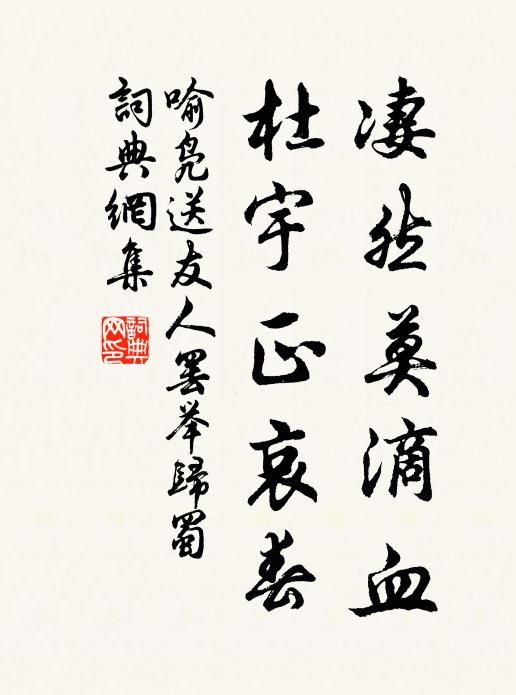 凄然莫滴血
杜宇正哀春
喻凫送友人罢举歸蜀
詞典網集
詞典网印